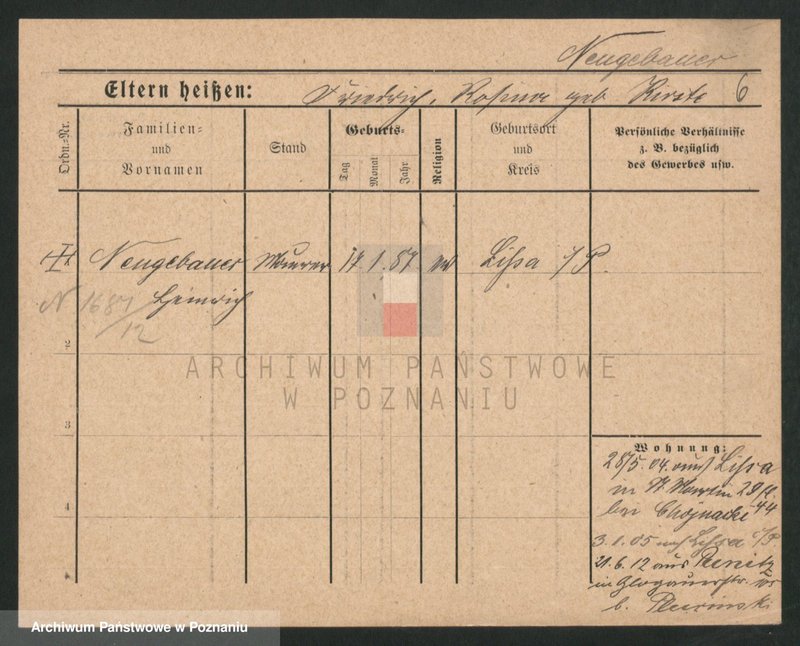 Neugebauer
Eltern heißen: Friedrich, Rosina geb. 6
Ordn.-Nr.
Familien- und Vornamen
Stand
Geburts-
Tag Monat Jahr
Religion
Geburtsort und Kreis
Persönliche Verhältnisse
z. B. bezüglich
des Gewerbes usw.
1 Neugebauer Maurer 17 1. 57 Lissa i/P.
Heinrich
N 1687/12
2
ARCHIWUM PAŃSTWOWE
W POZNANIU
3
Wohnung:
28/5. 04. aus Lissa
in St Martin
4
bei Chojnacki
3. 05 nach Lissa i/P
21. 6. 12 aus
in Glogauerstr.
b.
Archiwum Państwowe w Poznaniu